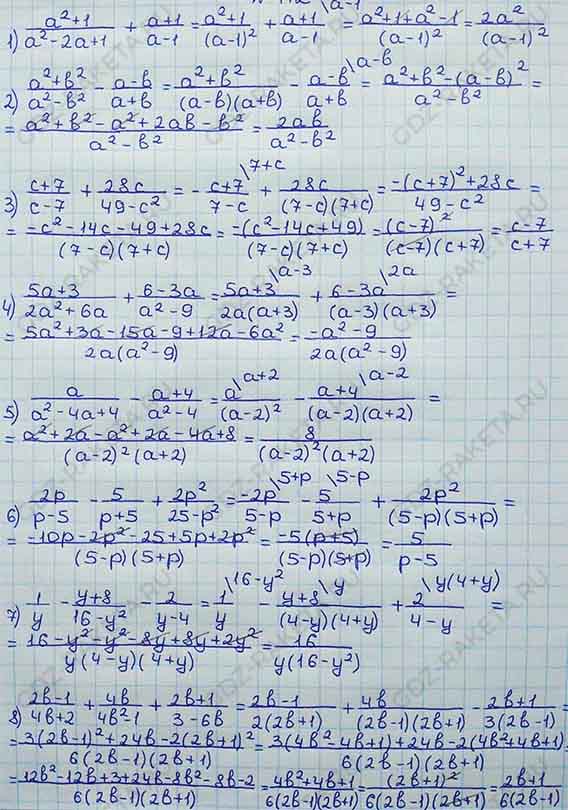 \a-1
1) (a²+1)/(a²-2a+1) + (a+1)/(a-1) = (a²+1)/(a-1)² + (a+1)/(a-1) = (a²+1+a²-1)/(a-1)² = 2a²/(a-1)²
2) (a²+b²)/(a²-b²) - (a-b)/(a+b) = (a²+b²)/((a-b)(a+b)) - (a-b)/(a+b) \a-b = (a²+b²-(a-b)²)/(a²-b²) =
= (a²+b²-a²+2ab-b²)/(a²-b²) = 2ab/(a²-b²)
3) (c+7)/(c-7) + 28c/(49-c²) = -(c+7)/(7-c) \7+c + 28c/((7-c)(7+c)) = (-(c+7)²+28c)/(49-c²) =
= (-c²-14c-49+28c)/((7-c)(7+c)) = -(c²-14c+49)/((7-c)(7+c)) = (c-7)²/((c-7)(c+7)) = (c-7)/(c+7)
4) (5a+3)/(2a²+6a) + (6-3a)/(a²-9) = (5a+3)/(2a(a+3)) \a-3 + (6-3a)/((a-3)(a+3)) \2a =
= (5a²+3a-15a-9+12a-6a²)/(2a(a²-9)) = (-a²-9)/(2a(a²-9))
5) a/(a²-4a+4) - (a+4)/(a²-4) = a/(a-2)² \a+2 - (a+4)/((a-2)(a+2)) \a-2 =
= (a²+2a-a²+2a-4a+8)/((a-2)²(a+2)) = 8/((a-2)²(a+2))
6) 2p/(p-5) - 5/(p+5) + 2p²/(25-p²) = -2p/(5-p) \5+p - 5/(5+p) \5-p + 2p²/((5-p)(5+p)) =
= (-10p-2p²-25+5p+2p²)/((5-p)(5+p)) = -5(p+5)/((5-p)(5+p)) = 5/(p-5)
7) 1/y - (y+8)/(16-y²) - 2/(y-4) = 1/y \16-y² - (y+8)/((4-y)(4+y)) \y + 2/(4-y) \y(4+y) =
= (16-y²-y²-8y+8y+2y²)/(y(4-y)(4+y)) = 16/(y(16-y²))
8) (2b-1)/(4b+2) + 4b/(4b²-1) + (2b+1)/(3-6b) = (2b-1)/(2(2b+1)) + 4b/((2b-1)(2b+1)) - (2b+1)/(3(2b-1)) =
= (3(2b-1)²+24b-2(2b+1)²)/(6(2b-1)(2b+1)) = (3(4b²-4b+1)+24b-2(4b²+4b+1))/(6(2b-1)(2b+1)) =
= (12b²-12b+3+24b-8b²-8b-2)/(6(2b-1)(2b+1)) = (4b²+4b+1)/(6(2b-1)(2b+1)) = (2b+1)²/(6(2b-1)(2b+1)) = (2b+1)/(6(2b-1))
GDZ-RAKETA.RU